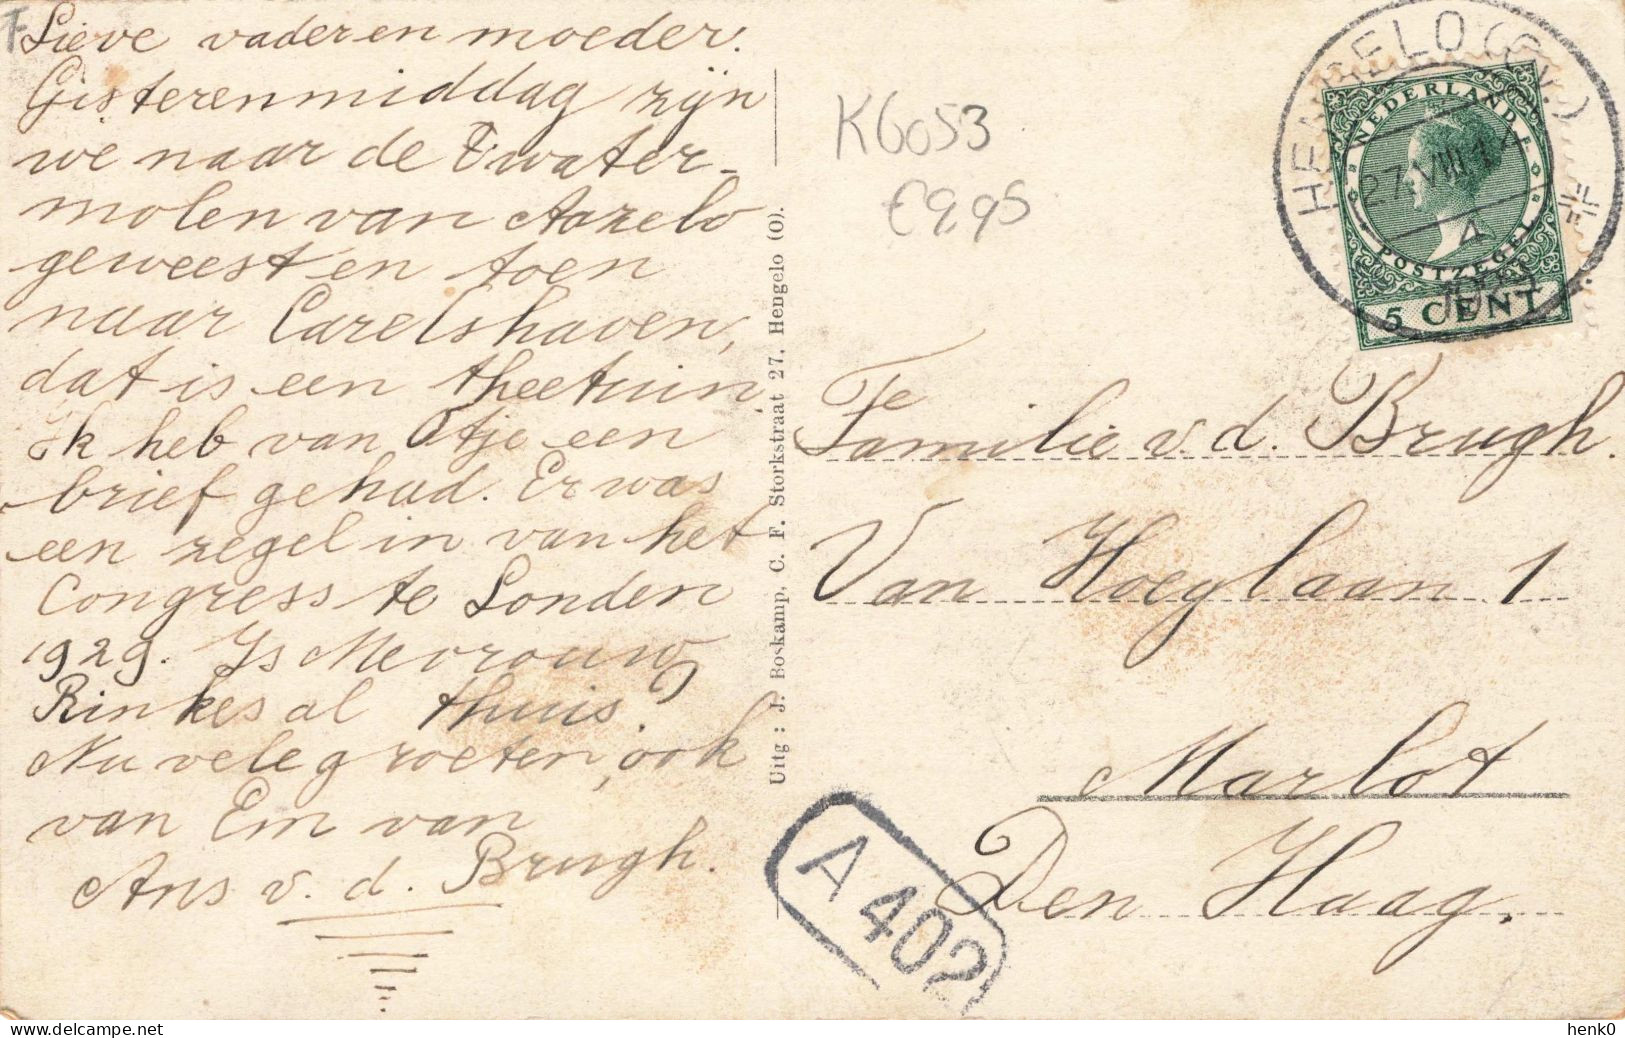 Lieve vader en moeder.
Gisterenmiddag zijn
we naar de watermolen van Azelo
geweest en toen
naar Carelshaven,
dat is een theetuin
ik heb van Otje een
brief gehad. Er was
een zegel in van het
Congress te Londen
1929. Is Mevrouw
Rinkes al thuis?
Nu vele groeten, ook
van Em van
Ans v. d. Brugh.
Uitg: J. Boskamp, C. F. Storkstraat 27, Hengelo (O).
K6053
€9,95
HENGELO (Ov.)
27.VIII.17
4
NEDERLAND
POSTZEGEL
5 CENT
Familie v.d. Brugh.
Van Hoeylaan 1
Marlot
Den Haag.
A 402
henk0